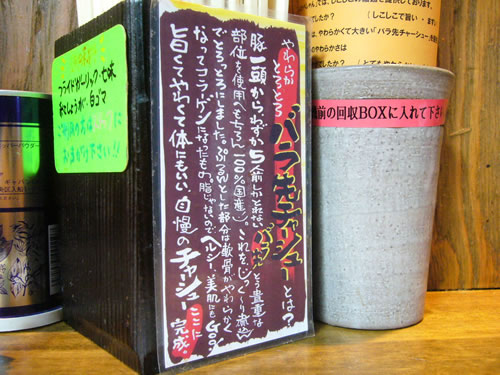 フライドガーリック・七味
あらびきこしょう、白ゴマ
やわらか
とろとろ
バラ先チャーシューとは?
豚一頭からわずか5人前しかとれないという貴重な
部位を使用(もちろん100%国産)。これを、じっく〜り煮込ん
でとろっとろにしました。ぷるんとした部分は軟骨がやわらかく
なってコラーゲンになったもの。脂じゃないのでヘルシー、美肌にもGood
旨くてやわくて体にもいい、自慢のチャーシューここに
完成。
前の回収BOXに入れて下さい
でしたか?
(しこしこで旨い・ます
は、やわらかくて大きい「バラ先チャーシュー
のやわらかさは
でしたか?